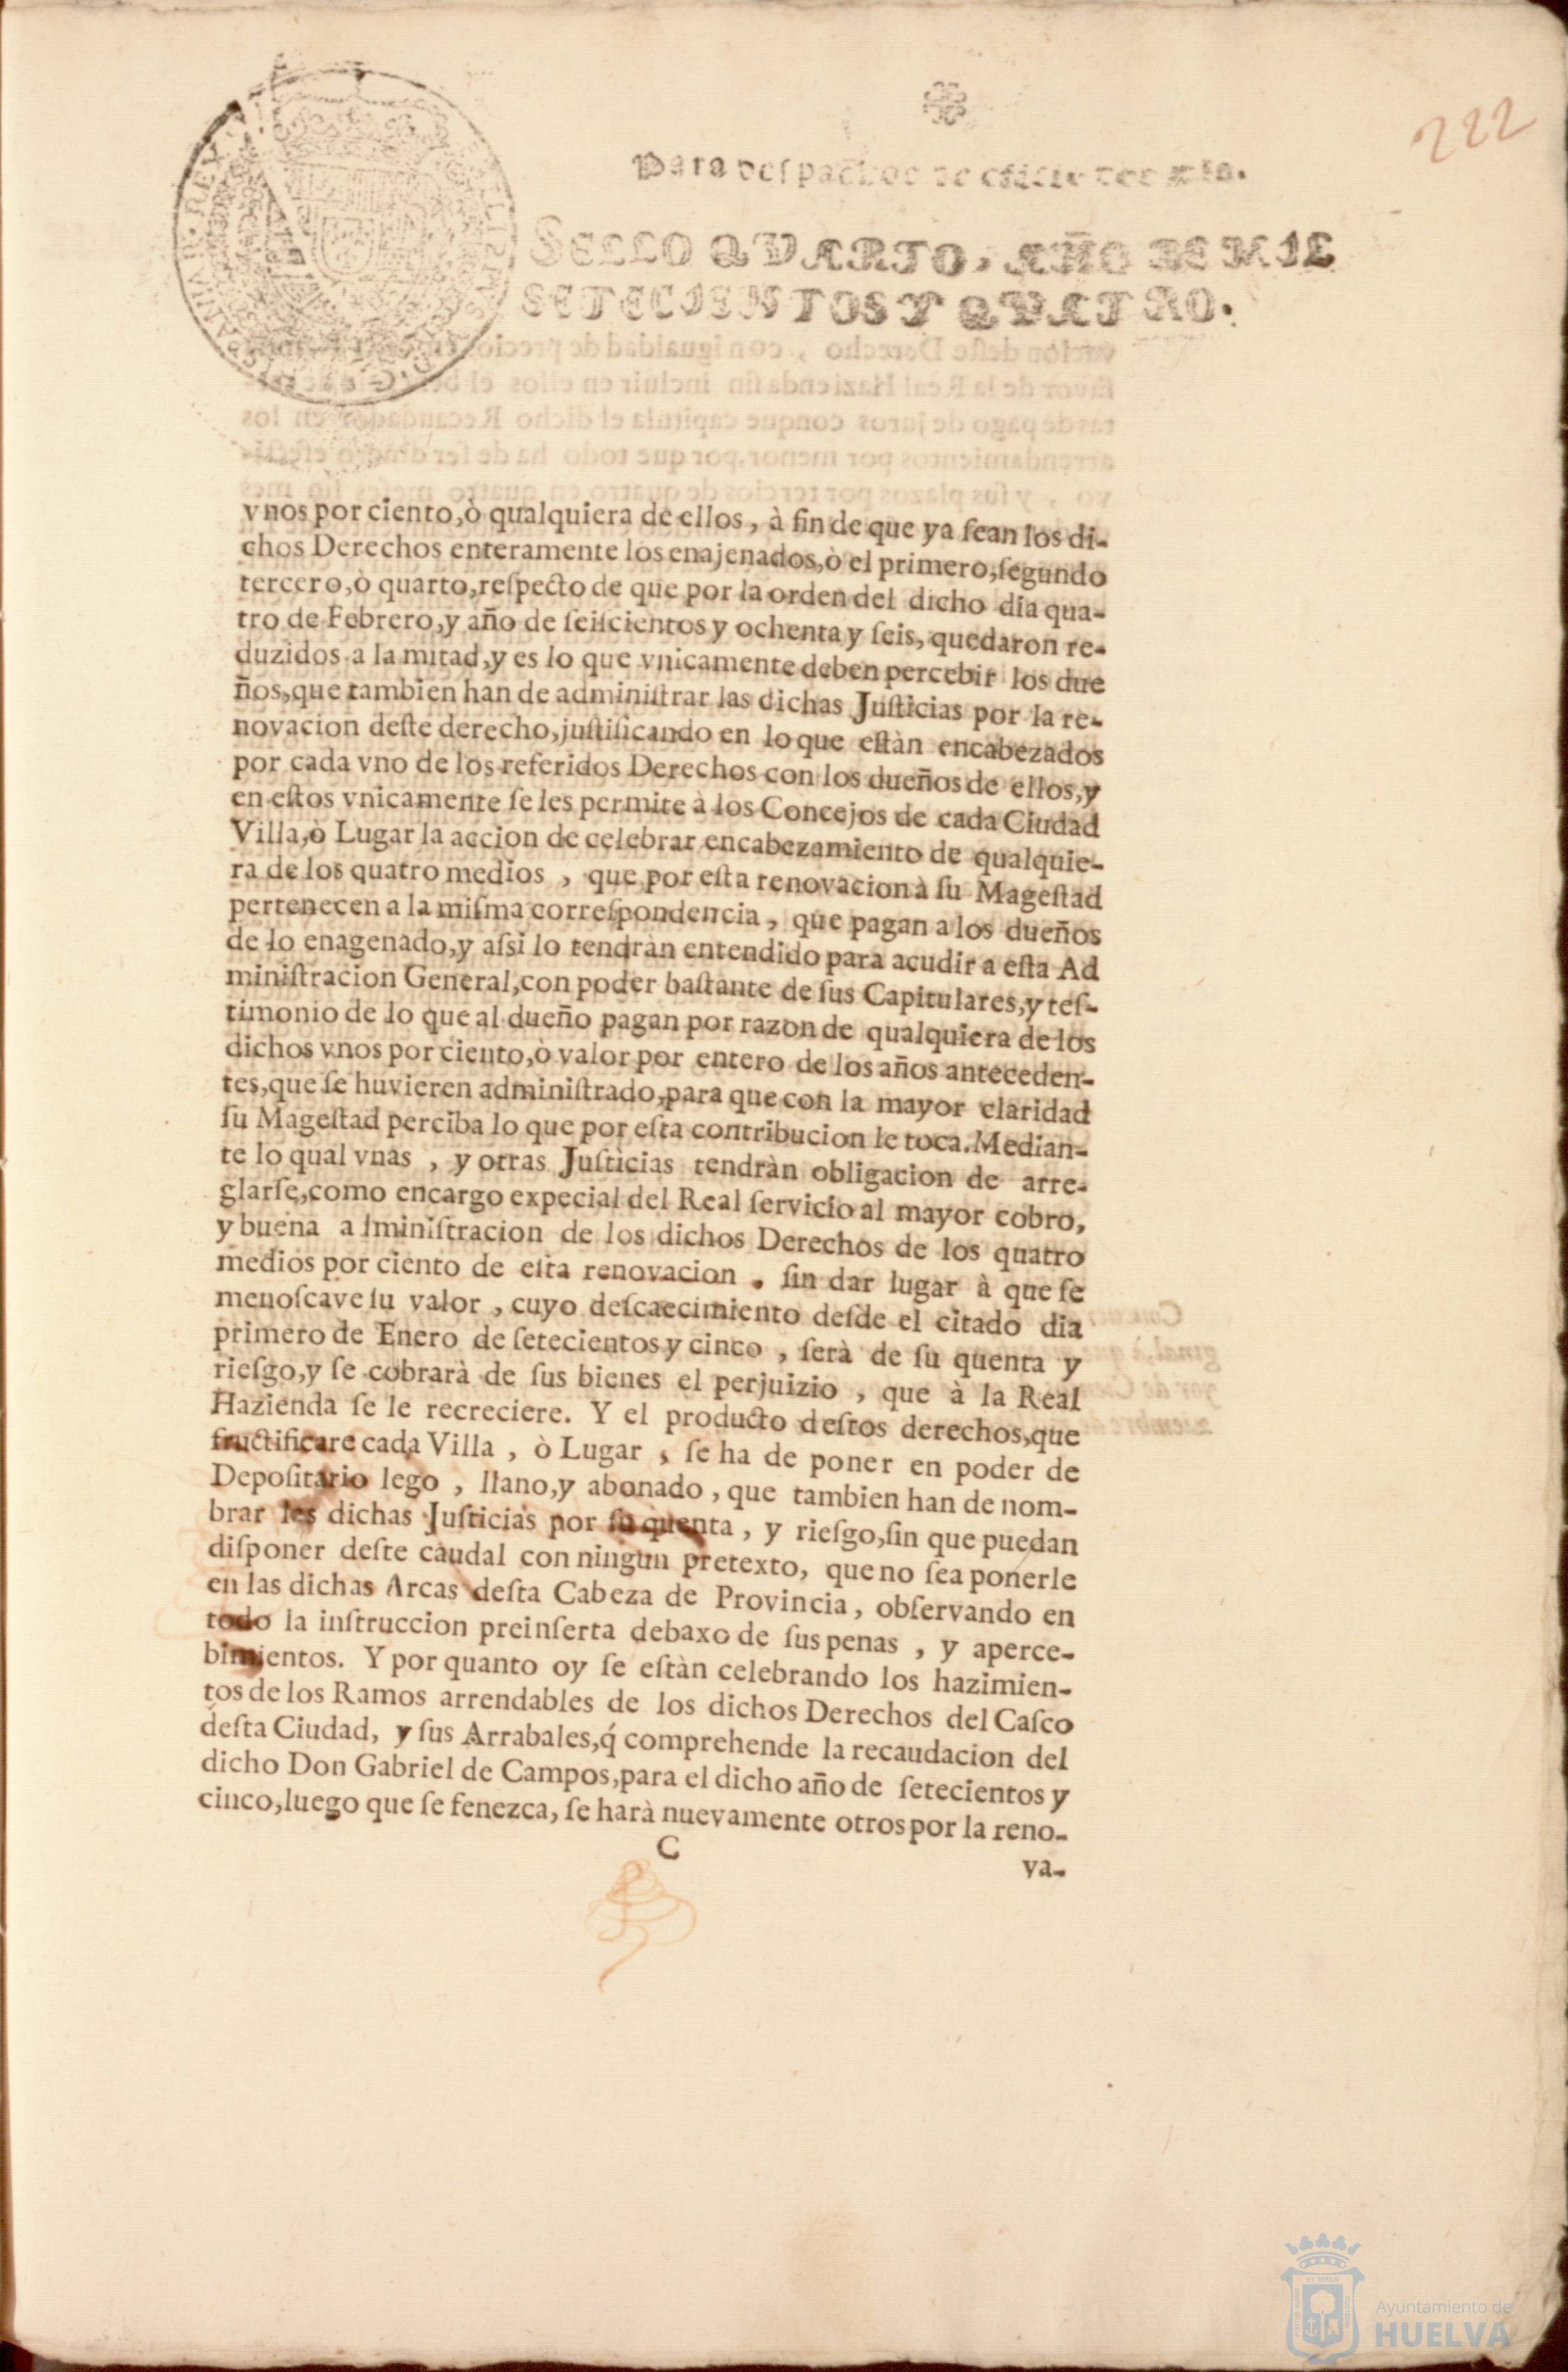 222
Para despachos de oficio dos mrs.
SELLO QVARTO, AÑO DE MIL
SETECIENTOS Y QVATRO.
vnos por ciento, ò qualquiera de ellos, à fin de que ya ſean los di-
chos Derechos enteramente los enajenados, ò el primero, ſegundo
tercero, ò quarto, reſpecto de que por la orden del dicho dia qua-
tro de Febrero, y año de ſeiſcientos y ochenta y ſeis, quedaron re-
duzidos a la mitad, y es lo que vnicamente deben percebir los due
ños, que tambien han de adminiſtrar las dichas Juſticias por la re-
novacion deſte derecho, juſtificando en lo que eſtàn encabezados
por cada vno de los referidos Derechos con los dueños de ellos, y
en eſtos vnicamente ſe les permite à los Concejos de cada Ciudad
Villa, ò Lugar la accion de celebrar encabezamiento de qualquie-
ra de los quatro medios , que por eſta renovacion à ſu Mageſtad
pertenecen a la miſma correſpondencia, que pagan a los dueños
de lo enagenado, y aſsi lo tendràn entendido para acudir a eſta Ad
miniſtracion General, con poder baſtante de ſus Capitulares, y teſ-
timonio de lo que al dueño pagan por razon de qualquiera de los
dichos vnos por ciento, ò valor por entero de los años anteceden-
tes, que ſe huvieren adminiſtrado, para que con la mayor claridad
ſu Mageſtad perciba lo que por eſta contribucion le toca. Median-
te lo qual vnas , y otras Juſticias tendràn obligacion de arre-
glarſe, como encargo expecial del Real ſervicio al mayor cobro,
y buena adminiſtracion de los dichos Derechos de los quatro
medios por ciento de eſta renovacion . ſin dar lugar à que ſe
menoſcave ſu valor , cuyo deſcaecimiento deſde el citado dia
primero de Enero de ſetecientos y cinco , ſerà de ſu quenta y
rieſgo, y ſe cobrarà de ſus bienes el perjuizio , que à la Real
Hazienda ſe le recreciere. Y el producto deſtos derechos, que
fructificare cada Villa , ò Lugar , ſe ha de poner en poder de
Depoſitario lego , llano, y abonado , que tambien han de nom-
brar les dichas Juſticias por ſu quenta , y rieſgo, ſin que puedan
diſponer deſte caudal con ningun pretexto, que no ſea ponerle
en las dichas Arcas deſta Cabeza de Provincia, obſervando en
todo la inſtruccion preinſerta debaxo de ſus penas , y aperce-
bimientos. Y por quanto oy ſe eſtàn celebrando los hazimien-
tos de los Ramos arrendables de los dichos Derechos del Caſco
deſta Ciudad, y ſus Arrabales, q́ comprehende la recaudacion del
dicho Don Gabriel de Campos, para el dicho año de ſetecientos y
cinco, luego que ſe fenezca, ſe harà nuevamente otros por la reno-
C
va-
Ayuntamiento de
HUELVA